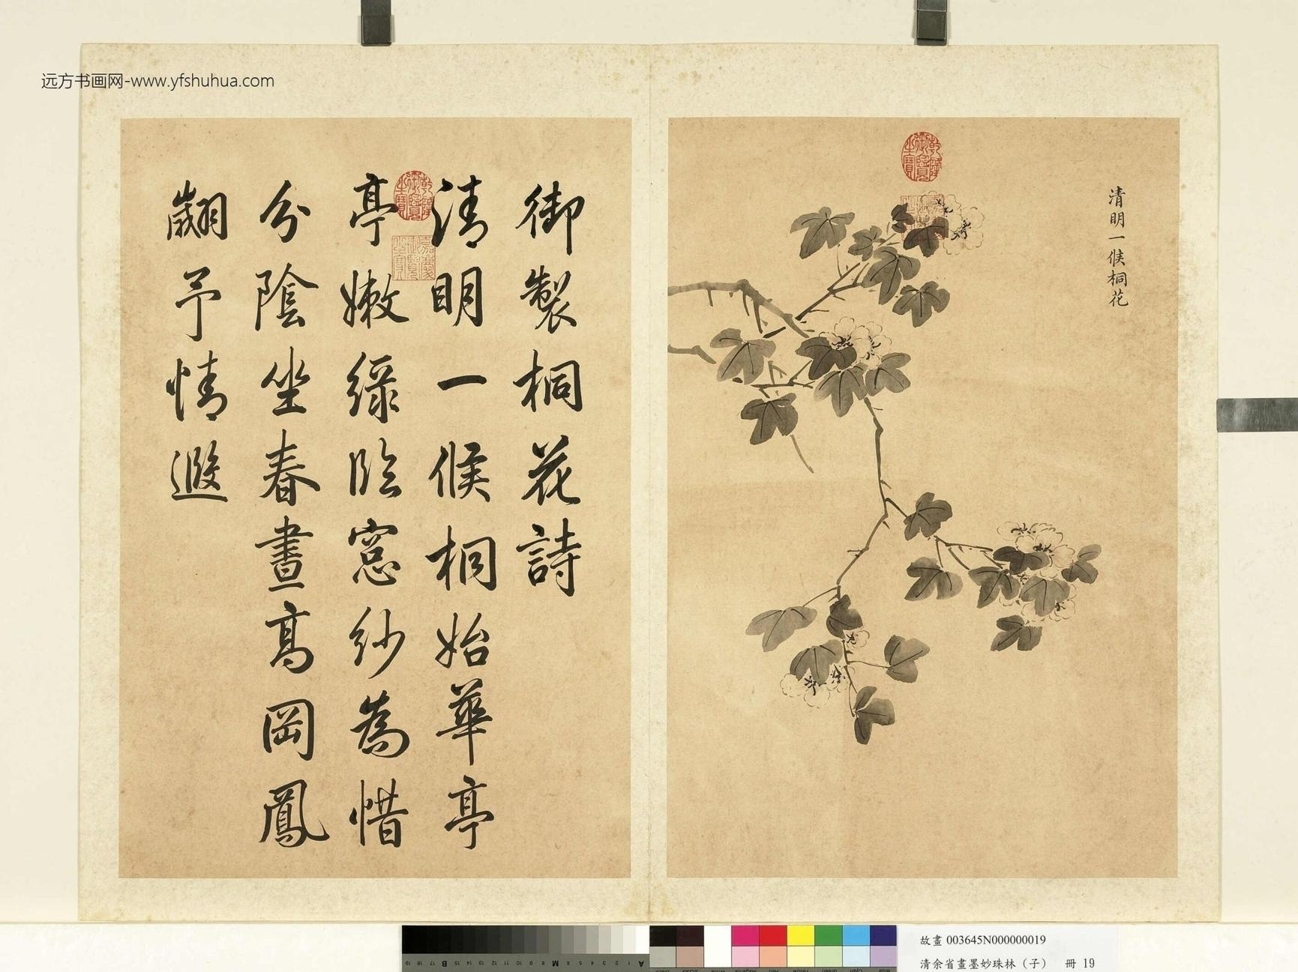 远方书画网-www.yfshuhua.com
清明一候桐花
御製桐花詩
清明一候桐始華亭
亭嫩綠臨窓紗為惜
分陰坐春晝高岡鳳
翽予情遐
故畫 003645N000000019
清余省畫墨妙珠林（子） 冊 19